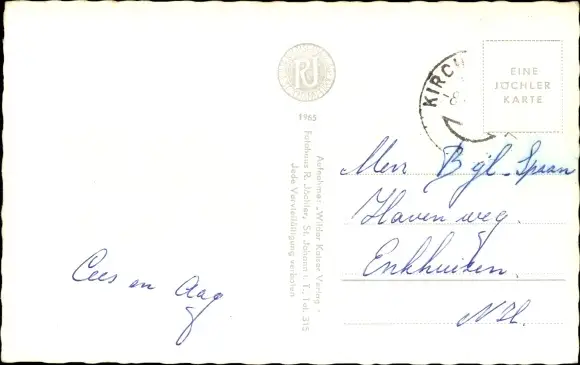 RJ
1965
Aufnahme: „Wilder Kaiser Verlag"
Fotohaus R. Jöchler, St. Johann i. T., Tel. 315
Jede Vervielfältigung verboten
KIRCH
-8.
EINE
JÖCHLER
KARTE
Mevr B gl-Spaan
Haven weg.
Enkhuizen.
N.H.
Cees en Aag